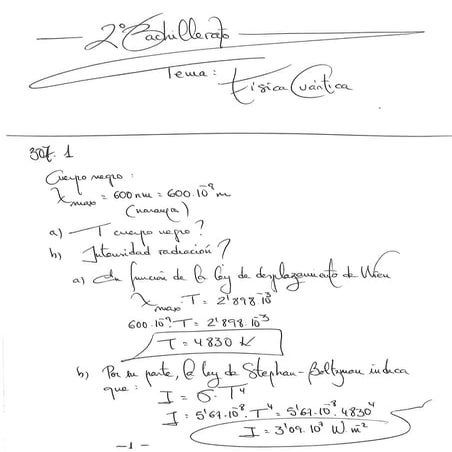 2º Bachillerato
Tema: Física Cuántica
307. 1
Cuerpo negro:
λmax = 600 nm = 600·10⁻⁹ m
(naranja)
a) T cuerpo negro?
b) Intensidad radiación?
a) En función de la ley de desplazamiento de Wien
λmax · T = 2'898·10⁻³
600·10⁻⁹ · T = 2'898·10⁻³
T = 4830 K
b) Por su parte, la ley de Stephan-Boltzman indica
que: I = σ · T⁴
I = 5'67·10⁻⁸ · T⁴ = 5'67·10⁻⁸ · 4830⁴
I = 3'09·10⁷ W m²
-1-